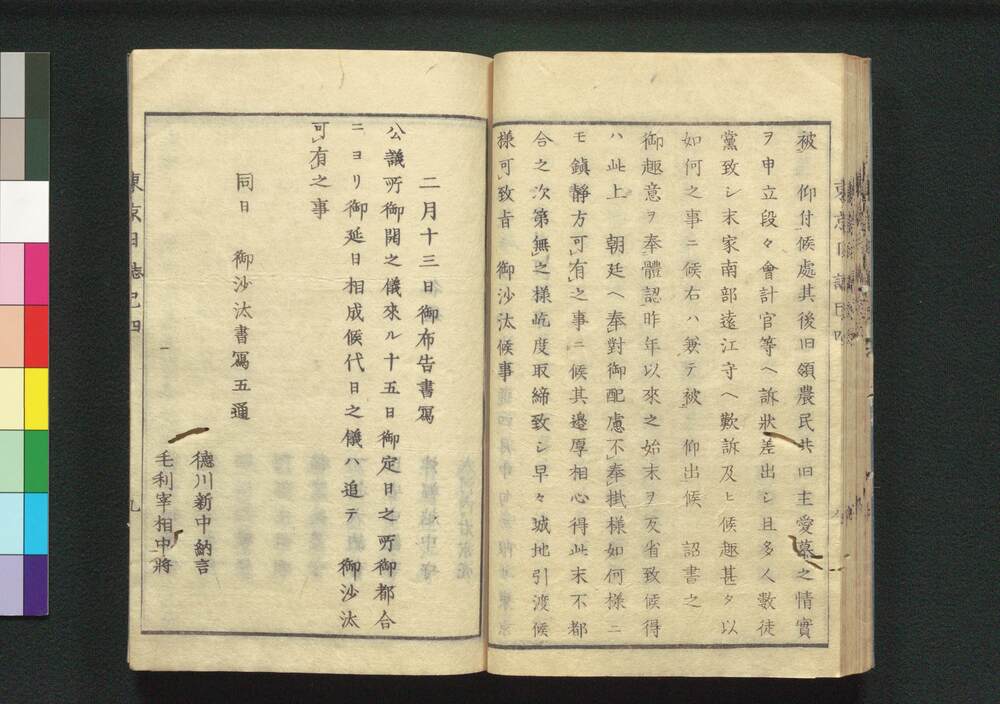 被 仰付候處其後旧領農民共旧主愛慕之情實
ヲ申立段々會計官等ヘ訴狀差出シ且多人數徒
黨致シ末家南部遠江守ヘ歎訴及ヒ候趣甚タ以
如何之事ニ候右ハ兼テ被 仰出候 詔書之
御趣意ヲ奉體認昨年以來之始末ヲ反省致候得
ハ此上 朝廷ヘ奉對御配慮不奉掛樣如何樣ニ
モ鎭靜方可有之事ニ候其邊厚相心得此末不都
合之次第無之樣屹度取締致シ早々城地引渡候
樣可致旨 御沙汰候事
二月十三日御布告書寫
公議所御開之儀來ル十五日御定日之所御都合
ニヨリ御延日相成候代日之儀ハ追テ 御沙汰
可有之事
同日 御沙汰書寫五通
德川新中納言
毛利宰相中將
東京日誌己四
九